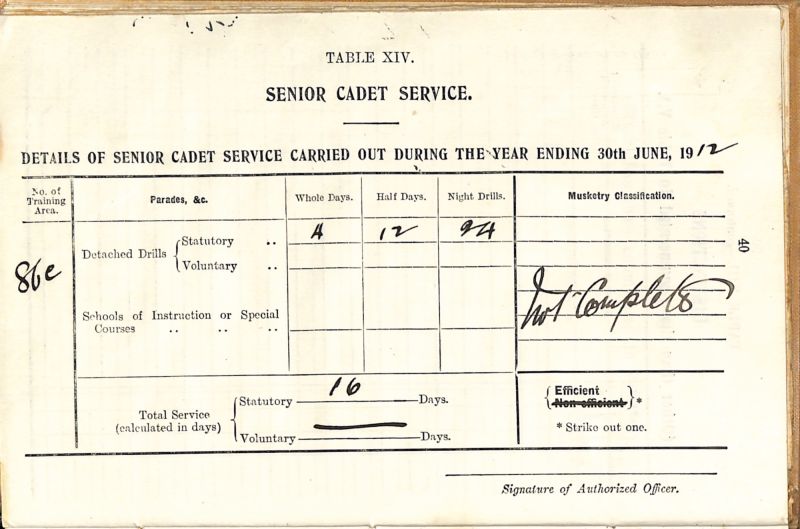 TABLE XIV.
SENIOR CADET SERVICE.
DETAILS OF SENIOR CADET SERVICE CARRIED OUT DURING THE YEAR ENDING 30th JUNE, 1912
No. of Training Area.
Parades, &c.
Whole Days.
Half Days.
Night Drills.
Musketry Classification.
86e
Detached Drills
Statutory .. 4 12 24
Voluntary ..
Not Complete
Schools of Instruction or Special
Courses .. .. ..
Total Service
(calculated in days)
Statutory 16 Days.
Voluntary — Days.
Efficient
Non-efficient
*
* Strike out one.
Signature of Authorized Officer.
40